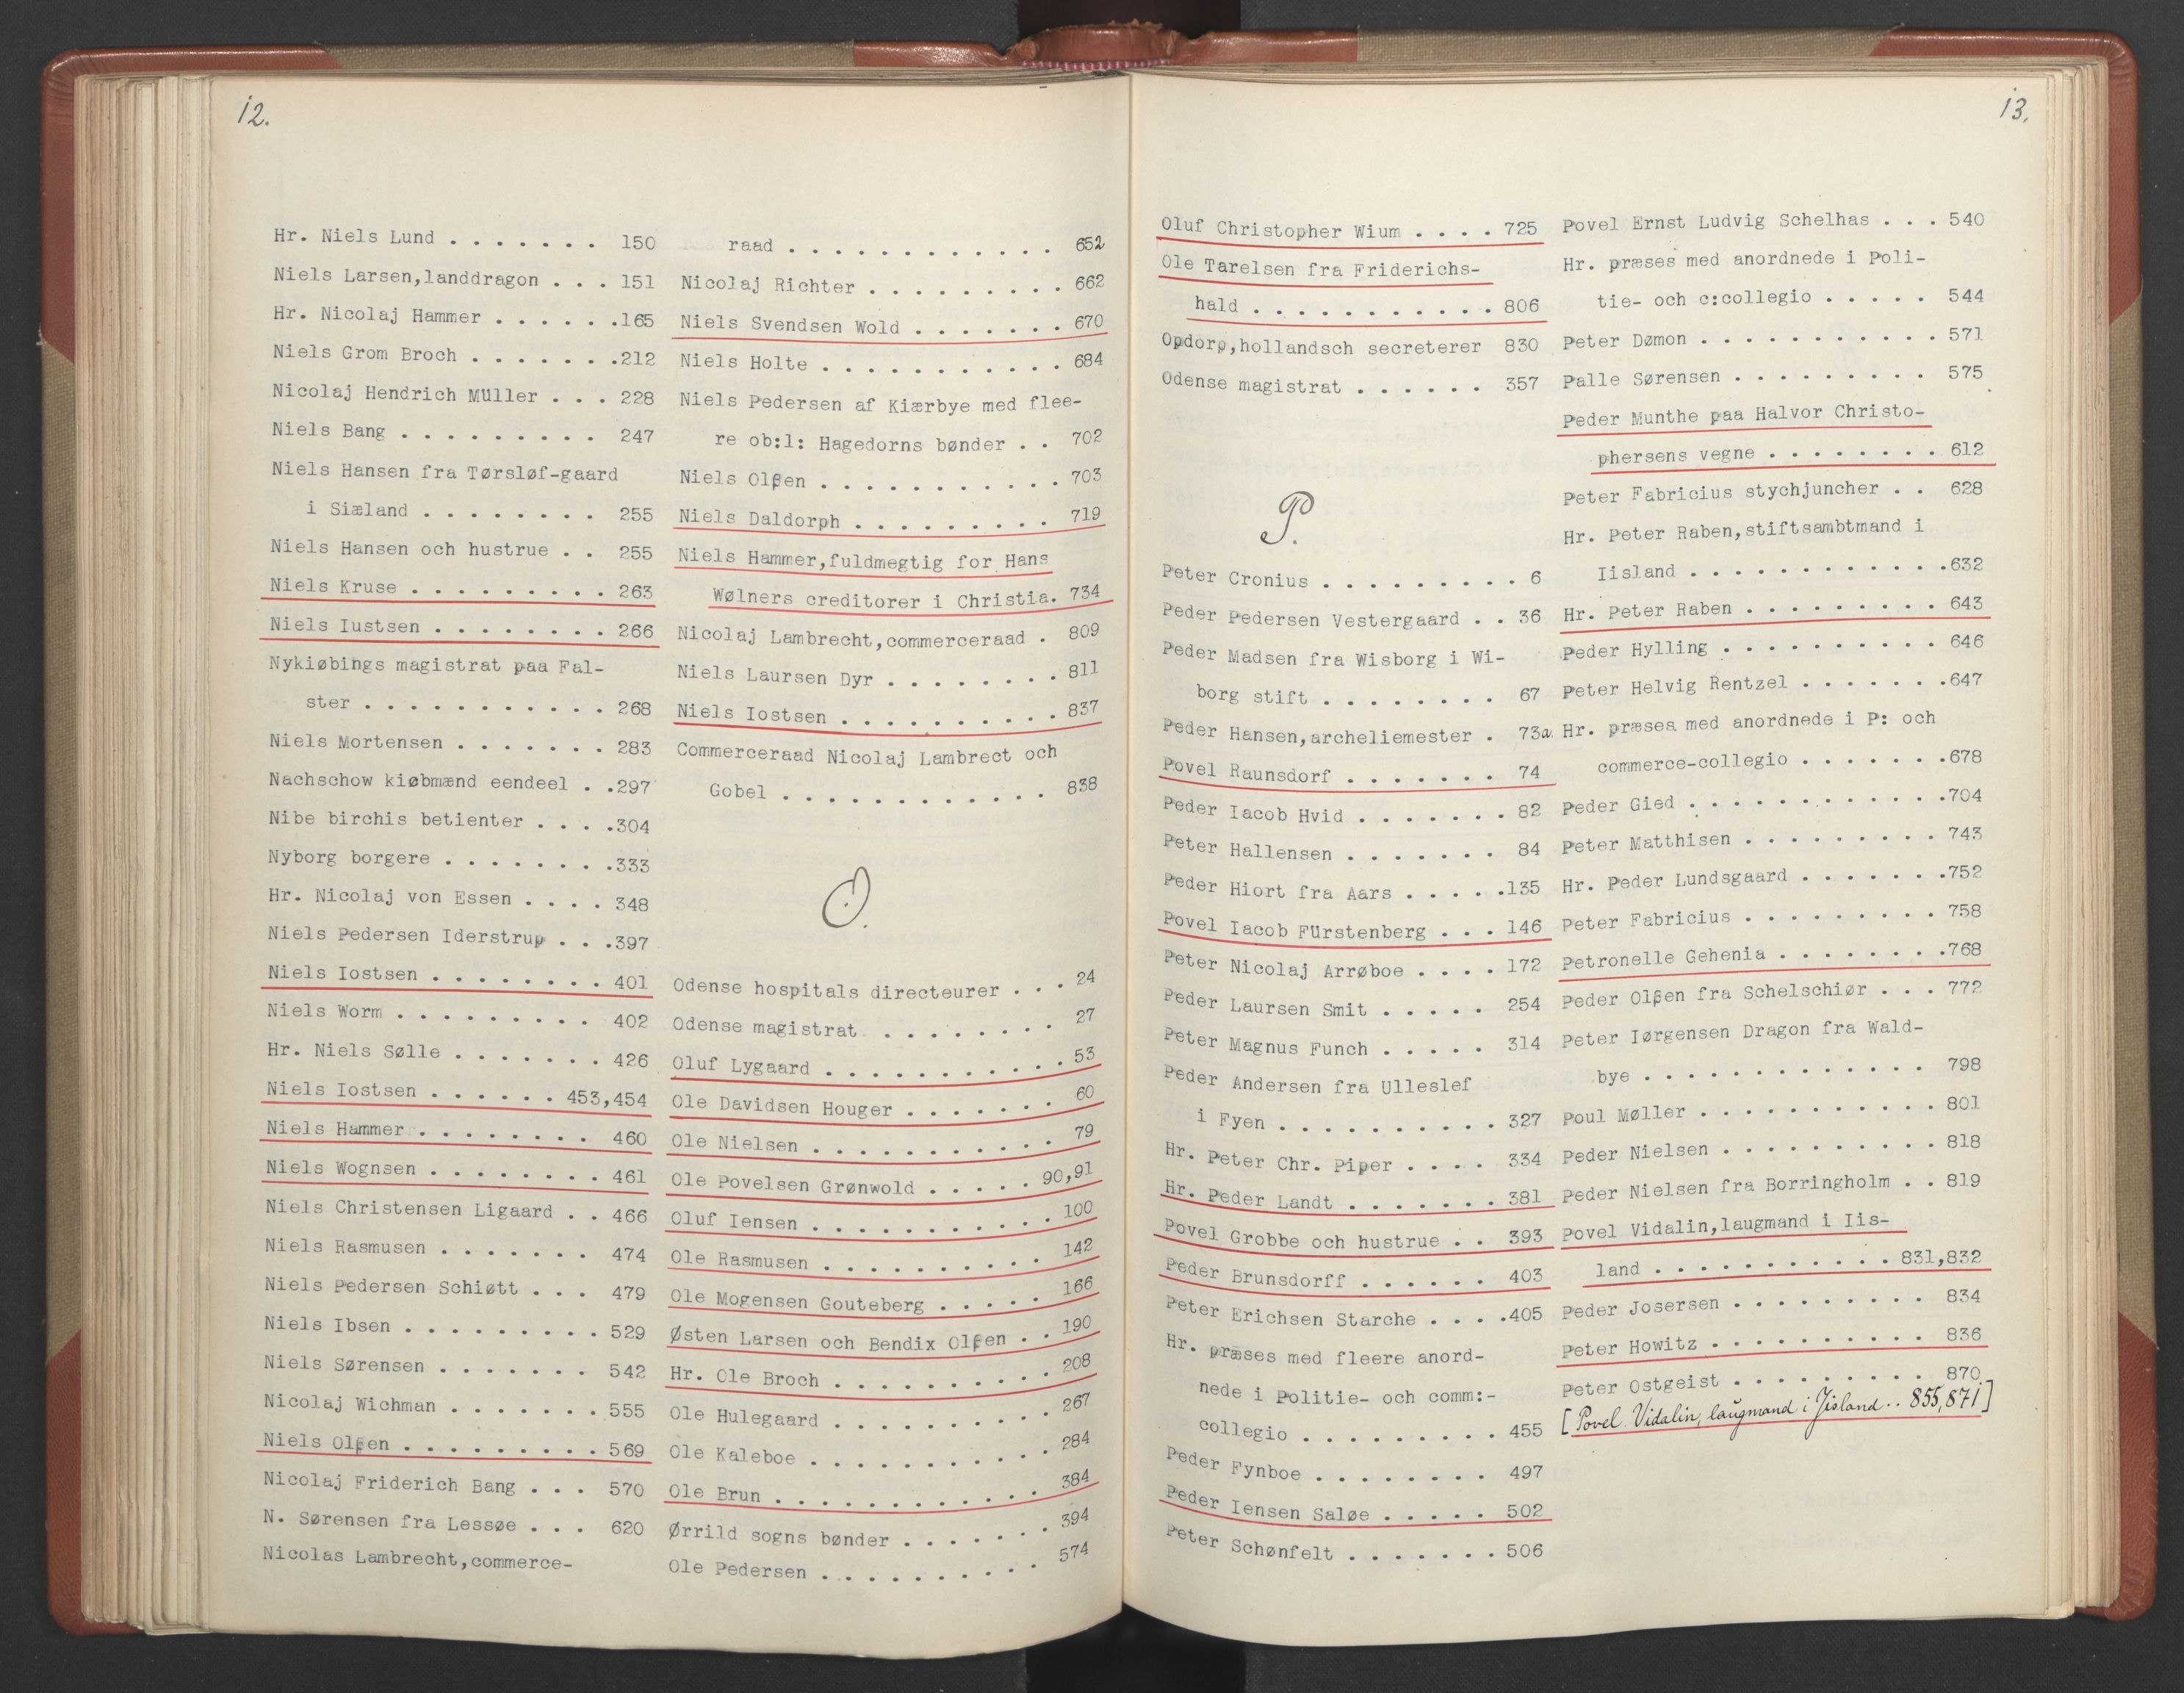 12.
Hr. Niels Lund . . . . . . . 150
Niels Larsen,landdragon . . . 151
Hr. Nicolaj Hammer . . . . . .165
Niels Grom Broch . . . . . . .212
Nicolaj Hendrich Müller . . . 228
Niels Bang . . . . . . . . . 247
Niels Hansen fra Tørsløf-gaard
i Siæland . . . . . . . . 255
Niels Hansen och hustrue . . 255
Niels Kruse . . . . . . . . . 263
Niels Iustsen . . . . . . . . 266
Nykiøbings magistrat paa Fal-
ster . . . . . . . . . . . 268
Niels Mortensen . . . . . . . 283
Nachschow kiøbmænd eendeel . .297
Nibe birchis betienter . . . .304
Nyborg borgere . . . . . . . .333
Hr. Nicolaj von Essen . . . . 348
Niels Pedersen Iderstrup . . .397
Niels Iostsen . . . . . . . . 401
Niels Worm . . . . . . . . . 402
Hr. Niels Sølle . . . . . . . 426
Niels Iostsen . . . . . . 453,454
Niels Hammer . . . . . . . . 460
Niels Wognsen . . . . . . . . 461
Niels Christensen Ligaard . . 466
Niels Rasmusen . . . . . . . 474
Niels Pedersen Schiøtt . . . 479
Niels Ibsen . . . . . . . . . 529
Niels Sørensen . . . . . . . 542
Nicolaj Wichman . . . . . . . 555
Niels Olßen . . . . . . . . . 569
Nicolaj Friderich Bang . . . 570
N. Sørensen fra Lessøe . . . 620
Nicolas Lambrecht,commerce-
raad . . . . . . . . . . . . 652
Nicolaj Richter . . . . . . . . . 662
Niels Svendsen Wold . . . . . . . 670
Niels Holte . . . . . . . . . . . 684
Niels Pedersen af Kiærbye med flee-
re ob:l: Hagedorns bønder . . 702
Niels Olßen . . . . . . . . . . . 703
Niels Daldorph . . . . . . . . . 719
Niels Hammer,fuldmegtig for Hans
Wølners creditorer i Christia. 734
Nicolaj Lambrecht,commerceraad . 809
Niels Laursen Dyr . . . . . . . . 811
Niels Iostsen . . . . . . . . . . 837
Commerceraad Nicolaj Lambrect och
Gobel . . . . . . . . . . . . 838
O.
Odense hospitals directeurer . . . 24
Odense magistrat . . . . . . . . 27
Oluf Lygaard . . . . . . . . . . . 53
Ole Davidsen Houger . . . . . . . 60
Ole Nielsen . . . . . . . . . . . 79
Ole Povelsen Grønwold . . . . . 90,91
Oluf Iensen . . . . . . . . . . . 100
Ole Rasmusen . . . . . . . . . . 142
Ole Mogensen Gouteberg . . . . . 166
Østen Larsen och Bendix Olßen . . 190
Hr. Ole Broch . . . . . . . . . . 208
Ole Hulegaard . . . . . . . . . . 267
Ole Kaleboe . . . . . . . . . . . 284
Ole Brun . . . . . . . . . . . . 384
Ørrild sogns bønder . . . . . . . 394
Ole Pedersen . . . . . . . . . . 574
13.
Oluf Christopher Wium . . . . 725
Ole Tarelsen fra Friderichs-
hald . . . . . . . . . . . 806
Opdorp,hollandsch secreterer 830
Odense magistrat . . . . . . 357
P.
Peter Cronius . . . . . . . . . 6
Peder Pedersen Vestergaard . . 36
Peder Madsen fra Wisborg i Wi-
borg stift . . . . . . . . 67
Peder Hansen,archeliemester . 73a
Povel Raunsdorf . . . . . . . 74
Peder Iacob Hvid . . . . . . . 82
Peter Hallensen . . . . . . . 84
Peder Hiort fra Aars . . . . .135
Povel Iacob Fürstenberg . . . 146
Peter Nicolaj Arrøboe . . . . 172
Peder Laursen Smit . . . . . 254
Peter Magnus Funch . . . . . 314
Peder Andersen fra Ulleslef
i Fyen . . . . . . . . . . 327
Hr. Peter Chr. Piper . . . . 334
Hr. Peder Landt . . . . . . . 381
Povel Grobbe och hustrue . . 393
Peder Brunsdorff . . . . . . 403
Peter Erichsen Starche . . . .405
Hr. præses med fleere anord-
nede i Politie- och comm:-
collegio . . . . . . . . . 455
Peder Fynboe . . . . . . . . 497
Peder Iensen Saløe . . . . . 502
Peter Schønfelt . . . . . . . 506
Povel Ernst Ludvig Schelhas . . . 540
Hr. præses med anordnede i Poli-
tie- och c:collegio . . . . . 544
Peter Dømon . . . . . . . . . . . 571
Palle Sørensen . . . . . . . . . 575
Peder Munthe paa Halvor Christo-
phersens vegne . . . . . . . . 612
Peter Fabricius stychjuncher . . 628
Hr. Peter Raben,stiftsambtmand i
Iisland . . . . . . . . . . . .632
Hr. Peter Raben . . . . . . . . . 643
Peder Hylling . . . . . . . . . . 646
Peter Helvig Rentzel . . . . . . .647
Hr. præses med anordnede i P: och
commerce-collegio . . . . . . .678
Peder Gied . . . . . . . . . . . .704
Peter Matthisen . . . . . . . . . 743
Hr. Peder Lundsgaard . . . . . . .752
Peter Fabricius . . . . . . . . . 758
Petronelle Gehenia . . . . . . . .768
Peder Olßen fra Schelschiør . . . 772
Peter Iørgensen Dragon fra Wald-
bye . . . . . . . . . . . . . 798
Poul Møller . . . . . . . . . . . 801
Peder Nielsen . . . . . . . . . . 818
Peder Nielsen fra Borringholm . . 819
Povel Vidalin,laugmand i Iis-
land . . . . . . . . . . . 831,832
Peder Josersen . . . . . . . . . 834
Peter Howitz . . . . . . . . . . 836
Peter Ostgeist . . . . . . . . . 870
[Povel Vidalin, laugmand i Jisland . . 855,871]